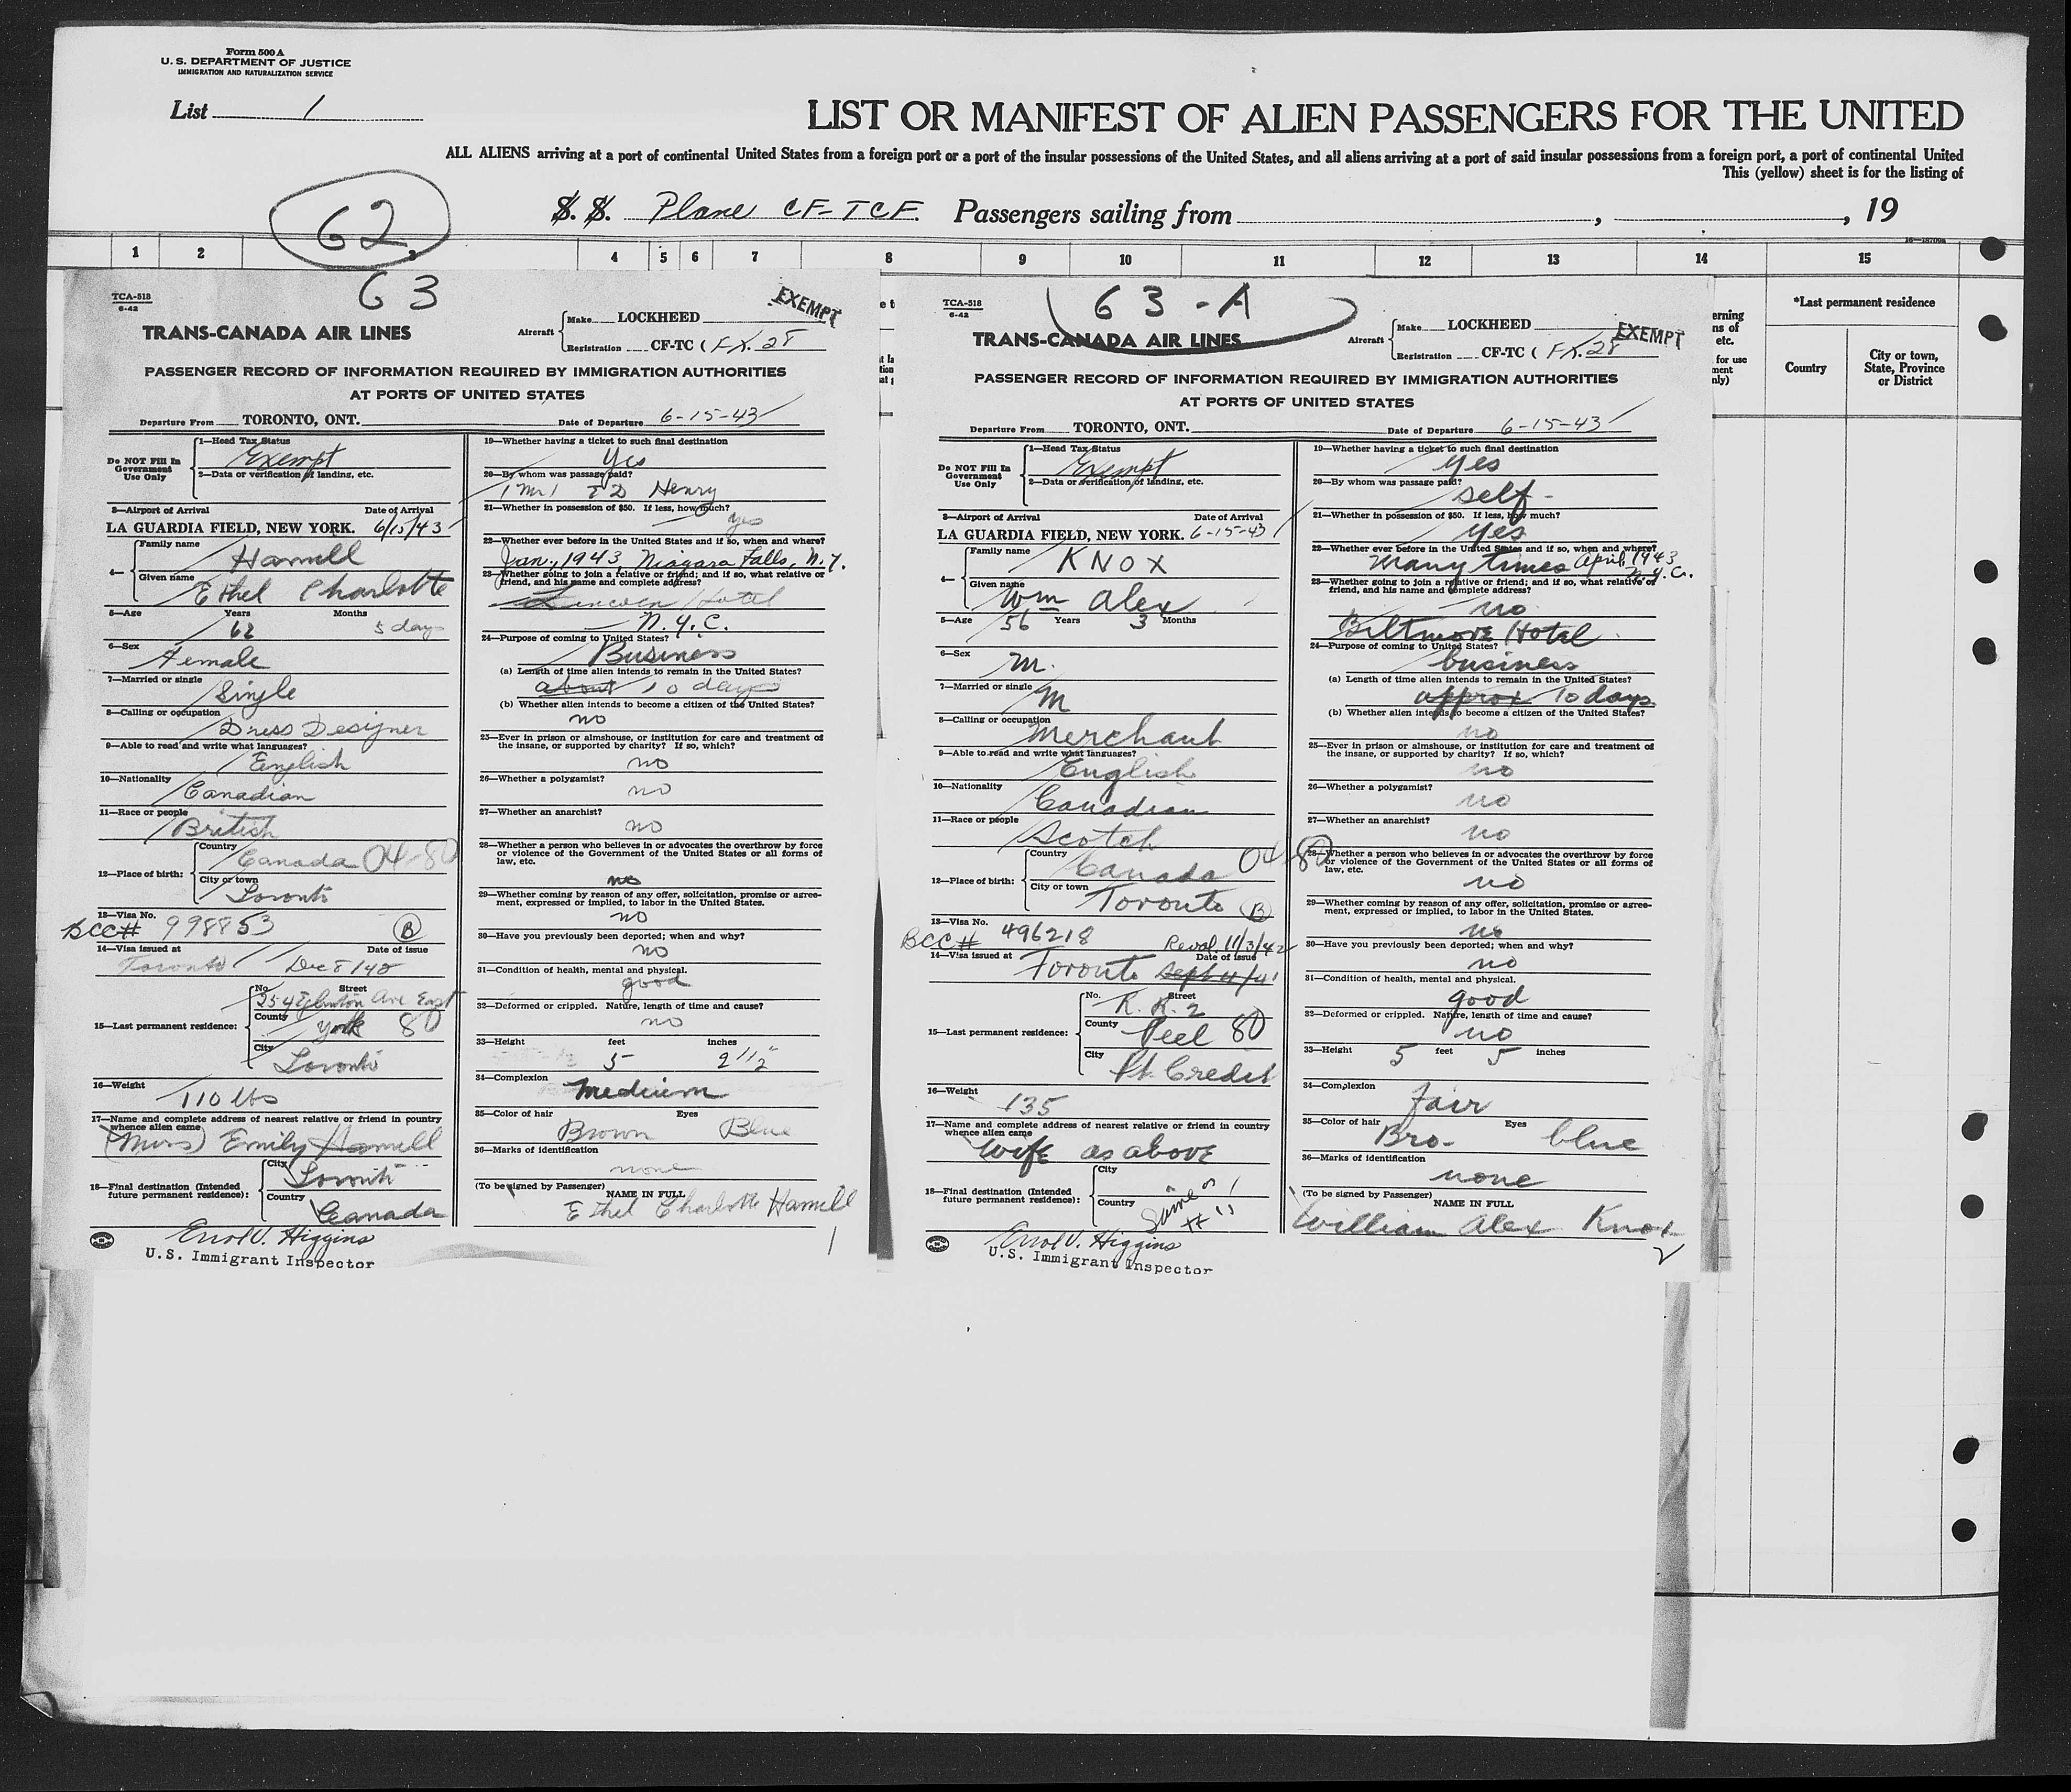 Form 500 A
U. S. DEPARTMENT OF JUSTICE
IMMIGRATION AND NATURALIZATION SERVICE
List 1
LIST OR MANIFEST OF ALIEN PASSENGERS FOR THE UNITED
ALL ALIENS arriving at a port of continental United States from a foreign port or a port of the insular possessions of the United States, and all aliens arriving at a port of said insular possessions from a foreign port, a port of continental United
This (yellow) sheet is for the listing of
S. S. Plane CF-TCF. Passengers sailing from , , 19
62
16—18700a
1 2 3 4 5 6 7 8 9 10 11 12 13 14 15
*Last permanent residence
Country
City or town, State, Province or District
erning
ns of
etc.
for use
ment
nly)
63
TCA-518
6-42
EXEMPT
TRANS-CANADA AIR LINES
Aircraft Make LOCKHEED
Registration CF-TC ( FX. 28
PASSENGER RECORD OF INFORMATION REQUIRED BY IMMIGRATION AUTHORITIES
AT PORTS OF UNITED STATES
Departure From TORONTO, ONT. Date of Departure 6-15-43
Do NOT Fill In Government Use Only
1—Head Tax Status
Exempt
2—Data or verification of landing, etc.
3—Airport of Arrival Date of Arrival
LA GUARDIA FIELD, NEW YORK. 6/15/43
4— Family name
Hamill
Given name
Ethel Charlotte
5—Age Years Months
62 5 days
6—Sex
Female
7—Married or single
Single
8—Calling or occupation
Dress Designer
9—Able to read and write what languages?
English
10—Nationality
Canadian
11—Race or people
British
12—Place of birth: Country
Canada 04-80
City or town
Toronto
13—Visa No.
BCC# 998853 B
14—Visa issued at Date of issue
Toronto Dec 8/42
15—Last permanent residence: No. Street
254 Eglinton Ave East
County
York 80
City
Toronto
16—Weight
110 lbs
17—Name and complete address of nearest relative or friend in country
whence alien came
(Miss) Emily Hamill
18—Final destination (Intended
future permanent residence): City
Toronto
Country
Canada
Errol V. Higgins
U.S. Immigrant Inspector
19—Whether having a ticket to such final destination
Yes
20—By whom was passage paid?
(Mr) ED Henry
21—Whether in possession of $50. If less, how much?
yes
22—Whether ever before in the United States and if so, when and where?
Jan, 1943, Niagara Falls, N.Y.
23—Whether going to join a relative or friend; and if so, what relative or
friend, and his name and complete address?
Lincoln Hotel
N.Y.C.
24—Purpose of coming to United States?
Business
(a) Length of time alien intends to remain in the United States?
about 10 days
(b) Whether alien intends to become a citizen of the United States?
no
25—Ever in prison or almshouse, or institution for care and treatment of
the insane, or supported by charity? If so, which?
no
26—Whether a polygamist?
no
27—Whether an anarchist?
no
28—Whether a person who believes in or advocates the overthrow by force
or violence of the Government of the United States or all forms of
law, etc.
no
29—Whether coming by reason of any offer, solicitation, promise or agree-
ment, expressed or implied, to labor in the United States.
no
30—Have you previously been deported; when and why?
no
31—Condition of health, mental and physical.
good
32—Deformed or crippled. Nature, length of time and cause?
no
33—Height feet inches
5 2 1/2"
34—Complexion
Medium
35—Color of hair Eyes
Brown Blue
36—Marks of identification
none
(To be signed by Passenger)
NAME IN FULL
Ethel Charlotte Hamill
1
63-A
TCA-518
6-42
EXEMPT
TRANS-CANADA AIR LINES
Aircraft Make LOCKHEED
Registration CF-TC ( FX. 28
PASSENGER RECORD OF INFORMATION REQUIRED BY IMMIGRATION AUTHORITIES
AT PORTS OF UNITED STATES
Departure From TORONTO, ONT. Date of Departure 6-15-43
Do NOT Fill In Government Use Only
1—Head Tax Status
Exempt
2—Data or verification of landing, etc.
3—Airport of Arrival Date of Arrival
LA GUARDIA FIELD, NEW YORK. 6-15-43
4— Family name
KNOX
Given name
Wm Alex
5—Age Years Months
56 3
6—Sex
M.
7—Married or single
M
8—Calling or occupation
Merchant
9—Able to read and write what languages?
English
10—Nationality
Canadian
11—Race or people
Scotch
12—Place of birth: Country
Canada 04-80
City or town
Toronto B
13—Visa No.
BCC# 496218 Reval. 11/3/42
14—Visa issued at Date of issue
Toronto Sept 11/41
15—Last permanent residence: No. Street
R.R.2
County
Peel 80
City
Pt. Credit
16—Weight
135
17—Name and complete address of nearest relative or friend in country
whence alien came
Wife as above
18—Final destination (Intended
future permanent residence): City
Country
Same as
Errol V. Higgins
U.S. Immigrant Inspector
19—Whether having a ticket to such final destination
yes
20—By whom was passage paid?
self-
21—Whether in possession of $50. If less, how much?
yes
22—Whether ever before in the United States and if so, when and where?
Many times April 1943 N.Y.C.
23—Whether going to join a relative or friend; and if so, what relative or
friend, and his name and complete address?
no
Biltmore Hotel
24—Purpose of coming to United States?
business
(a) Length of time alien intends to remain in the United States?
approx 10 days
(b) Whether alien intends to become a citizen of the United States?
no
25—Ever in prison or almshouse, or institution for care and treatment of
the insane, or supported by charity? If so, which?
no
26—Whether a polygamist?
no
27—Whether an anarchist?
no
28—Whether a person who believes in or advocates the overthrow by force
or violence of the Government of the United States or all forms of
law, etc.
no
29—Whether coming by reason of any offer, solicitation, promise or agree-
ment, expressed or implied, to labor in the United States.
no
30—Have you previously been deported; when and why?
no
31—Condition of health, mental and physical.
good
32—Deformed or crippled. Nature, length of time and cause?
no
33—Height feet inches
5 5
34—Complexion
Fair
35—Color of hair Eyes
Bro- blue
36—Marks of identification
none
(To be signed by Passenger)
NAME IN FULL
William Alex Knox
2